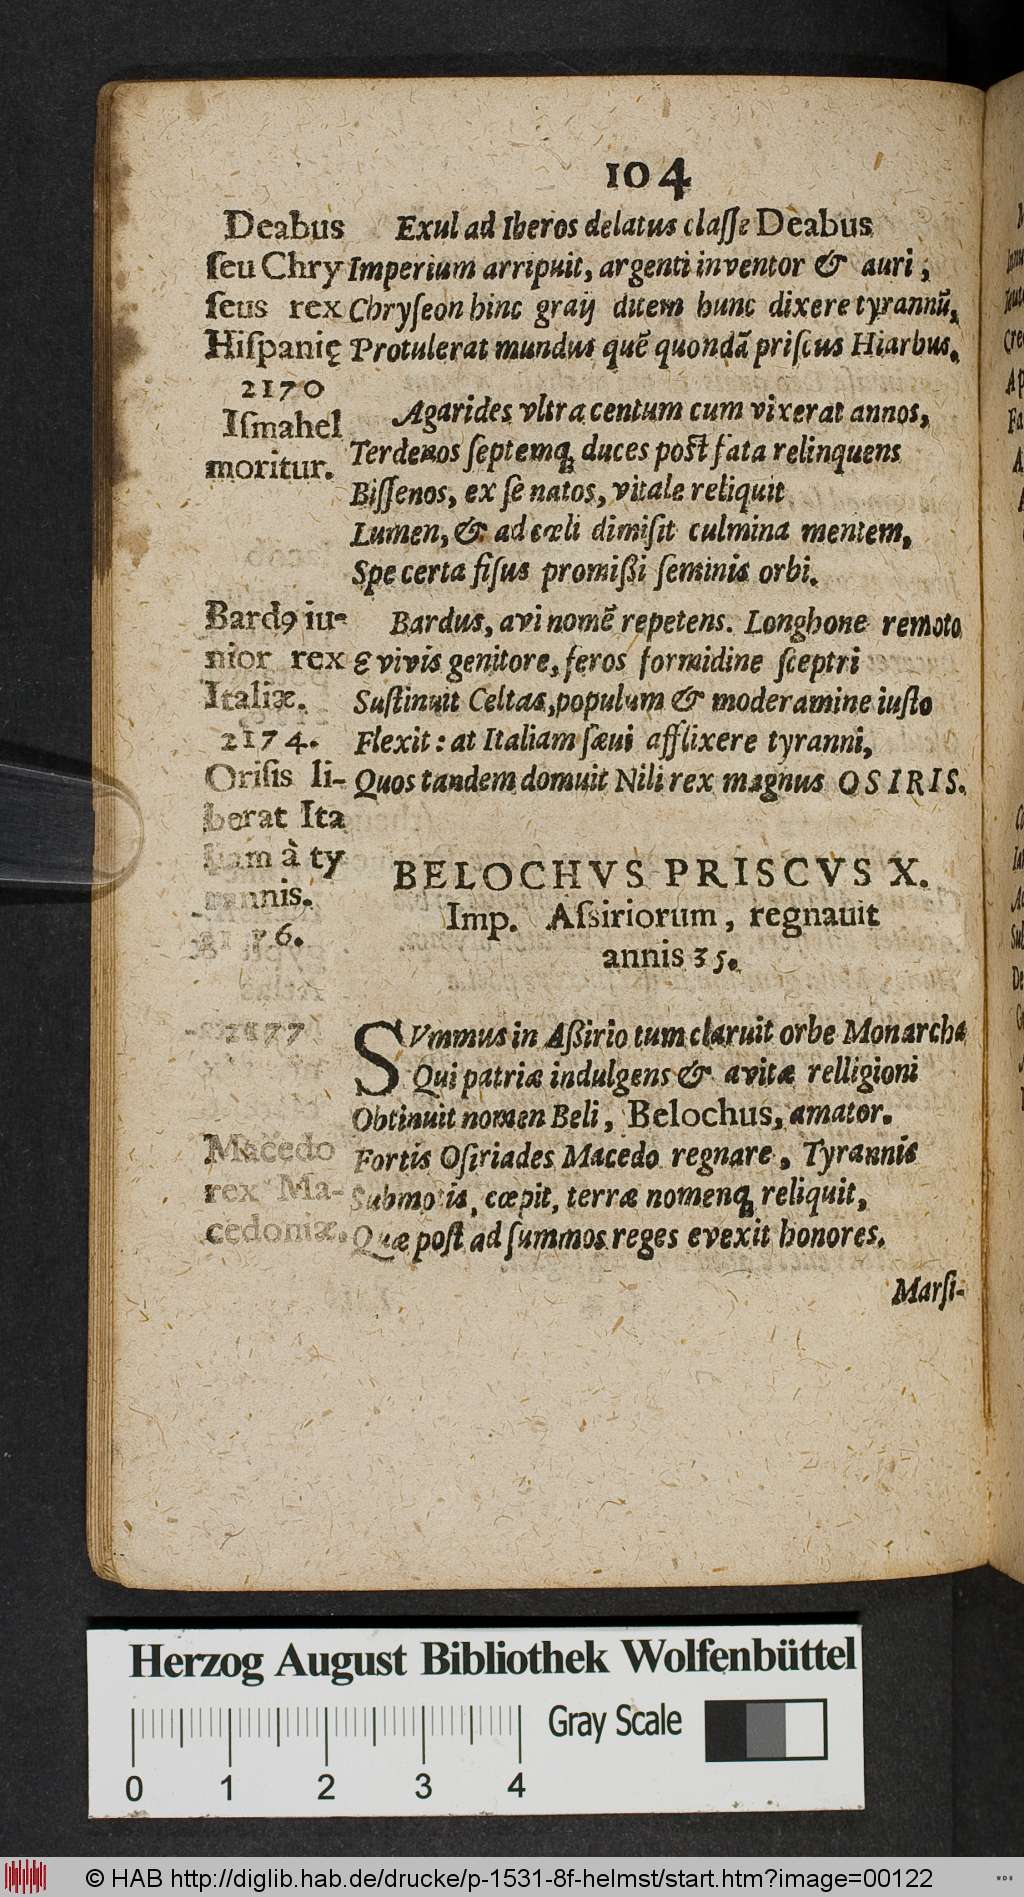 104
Deabus
ſeu Chry
ſeus rex
Hiſpanię
2170
Iſmahel
moritur.
Exul ad Iberos delatus claſſe Deabus
Imperium arripuit, argenti inventor & auri,
Chryſeon hinc graij ditem hunc dixere tyrannū,
Protulerat mundus quē quondā priſcus Hiarbus.
Agarides vltra centum cum vixerat annos,
Terdenos ſeptemq́ʒ duces poſt fata relinquens
Biſſenos, ex ſe natos, vitale reliquit
Lumen, & ad cœli dimiſit culmina mentem,
Spe certa fiſus promißi ſeminis orbi.
Bardꝰ iu-
nior rex
Italiæ.
2174.
Oriſis li-
berat Ita
liam à ty
rannis.
2176.
Bardus, avi nomē repetens. Longhone remoto
E vivis genitore, feros formidine ſceptri
Suſtinuit Celtas, populum & moderamine iuſto
Flexit: at Italiam ſævi afflixere tyranni,
Quos tandem domuit Nili rex magnus OSIRIS.
BELOCHVS PRISCVS X.
Imp. Aſsiriorum, regnavit
annis 35.
2177
SVmmus in Aßirio tum claruit orbe Monarcha
Qui patriæ indulgens & avitæ relligioni
Obtinuit nomen Beli, Belochus, amator.
Macedo
rex Ma-
cedoniæ.
Fortis Oſiriades Macedo regnare, Tyrannis
Submotis, cœpit, terræ nomenqʒ reliquit,
Quæ poſt ad ſummos reges evexit honores.
Marſi-
Herzog August Bibliothek Wolfenbüttel
Gray Scale
0 1 2 3 4
© HAB http://diglib.hab.de/drucke/p-1531-8f-helmst/start.htm?image=00122